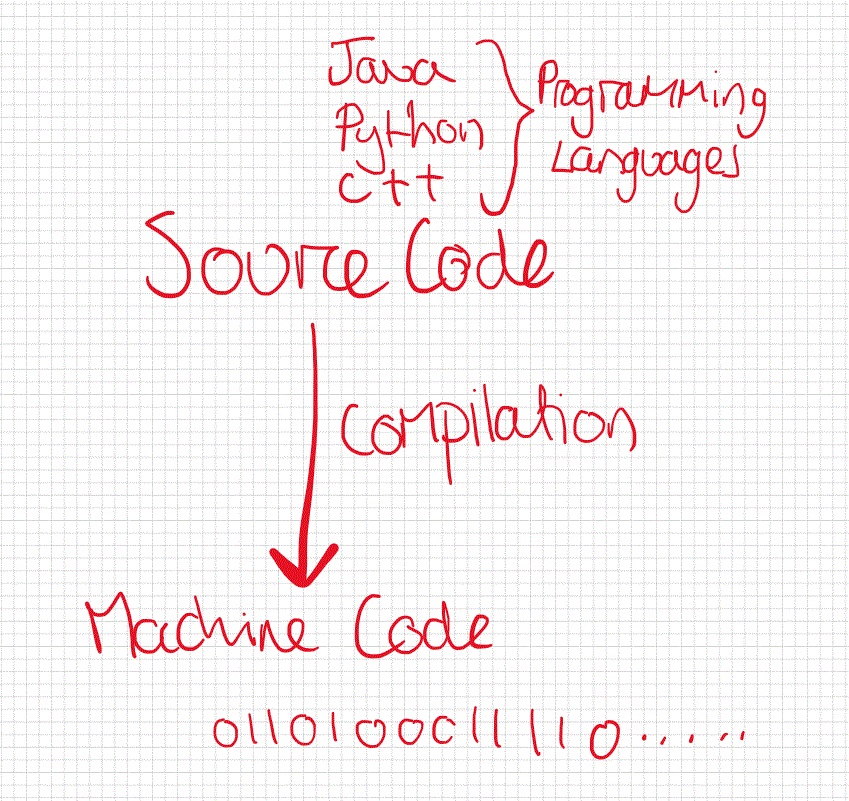 Java
Python
C++
Programming
Languages
Source Code
Compilation
Machine Code
0110100011110......